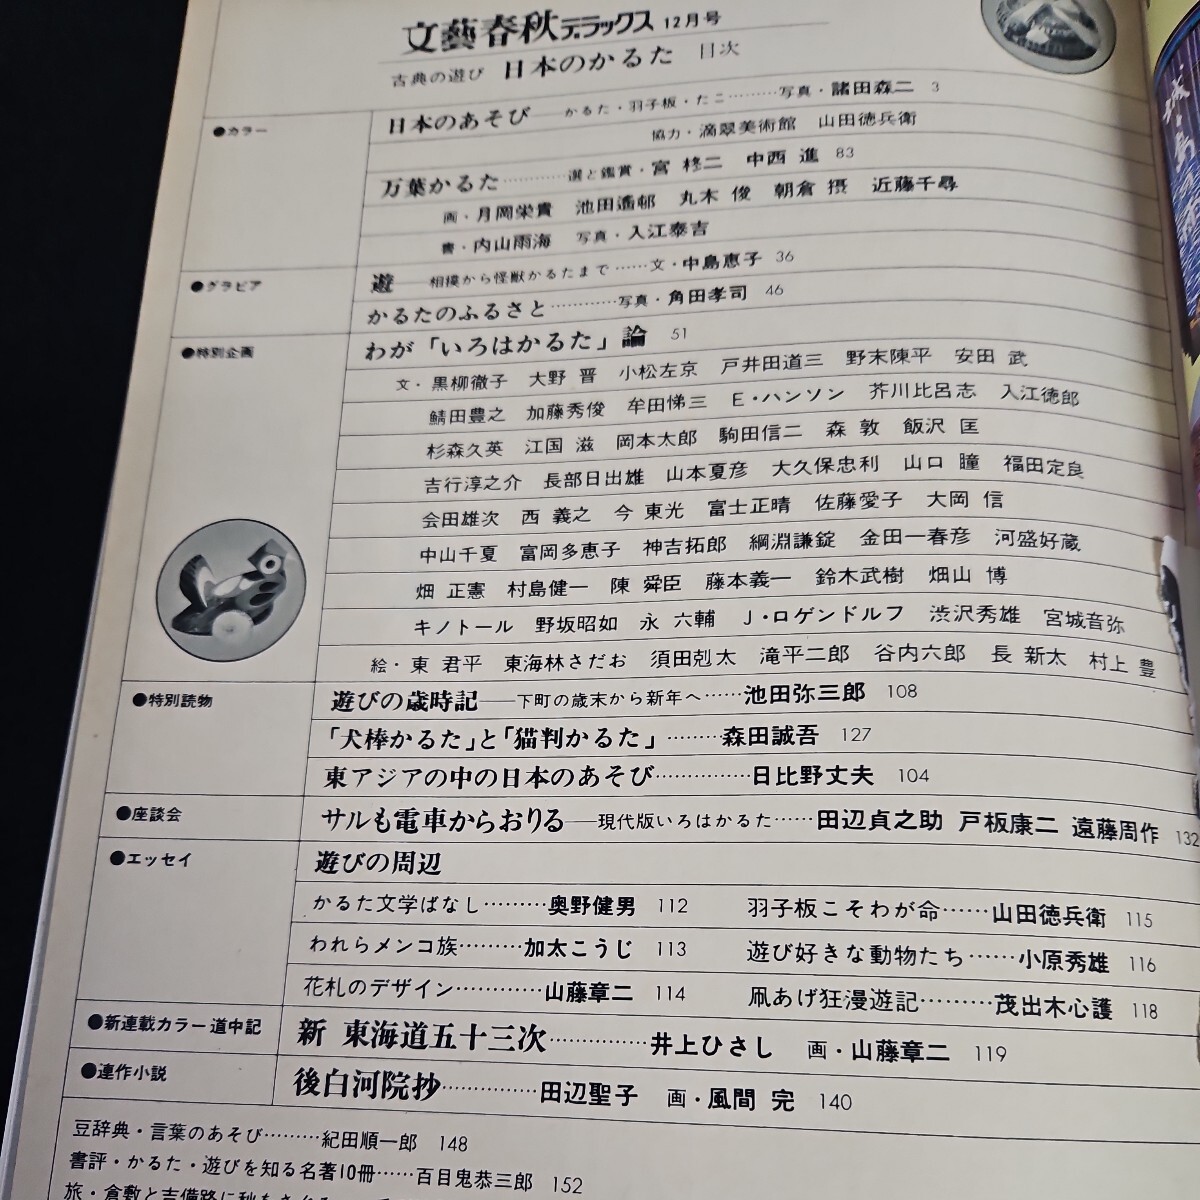 文藝春秋デラックス 12月号
古典の遊び 日本のかるた 目次
●カラー
日本のあそび──かるた・羽子板・たこ………写真・諸田森二 3
協力・滴翠美術館 山田徳兵衛
万葉かるた…………選と鑑賞・宮 柊二 中西 進 83
画・月岡栄貴 池田遙邨 丸木 俊 朝倉 摂 近藤千尋
書・内山雨海 写真・入江泰吉
●グラビア
遊──相撲から怪獣かるたまで……文・中島恵子 36
かるたのふるさと…………写真・角田孝司 46
●特別企画
わが「いろはかるた」論 51
文・黒柳徹子 大野 晋 小松左京 戸井田道三 野末陳平 安田 武
鯖田豊之 加藤秀俊 牟田悌三 E・ハンソン 芥川比呂志 入江徳郎
杉森久英 江国 滋 岡本太郎 駒田信二 森 敦 飯沢 匡
吉行淳之介 長部日出雄 山本夏彦 大久保忠利 山口 瞳 福田定良
会田雄次 西 義之 今 東光 富士正晴 佐藤愛子 大岡 信
中山千夏 富岡多恵子 神吉拓郎 綱淵謙錠 金田一春彦 河盛好蔵
畑 正憲 村島健一 陳 舜臣 藤本義一 鈴木武樹 畑山 博
キノトール 野坂昭如 永 六輔 J・ロゲンドルフ 渋沢秀雄 宮城音弥
絵・東 君平 東海林さだお 須田剋太 滝平二郎 谷内六郎 長 新太 村上 豊
●特別読物
遊びの歳時記──下町の歳末から新年へ……池田弥三郎 108
「犬棒かるた」と「猫判かるた」………森田誠吾 127
東アジアの中の日本のあそび……………日比野丈夫 104
●座談会
サルも電車からおりる──現代版いろはかるた……田辺貞之助 戸板康二 遠藤周作 132
●エッセイ
遊びの周辺
かるた文学ばなし………奥野健男 112 羽子板こそわが命……山田徳兵衛 115
われらメンコ族………加太こうじ 113 遊び好きな動物たち……小原秀雄 116
花札のデザイン…………山藤章二 114 凧あげ狂漫遊記………茂出木心護 118
●新連載カラー道中記
新 東海道五十三次……………井上ひさし 画・山藤章二 119
●連作小説
後白河院抄……………田辺聖子 画・風間 完 140
豆辞典・言葉のあそび………紀田順一郎 148
書評・かるた・遊びを知る名著10冊……百目鬼恭三郎 152
旅・倉敷と吉備路に秋をさぐる